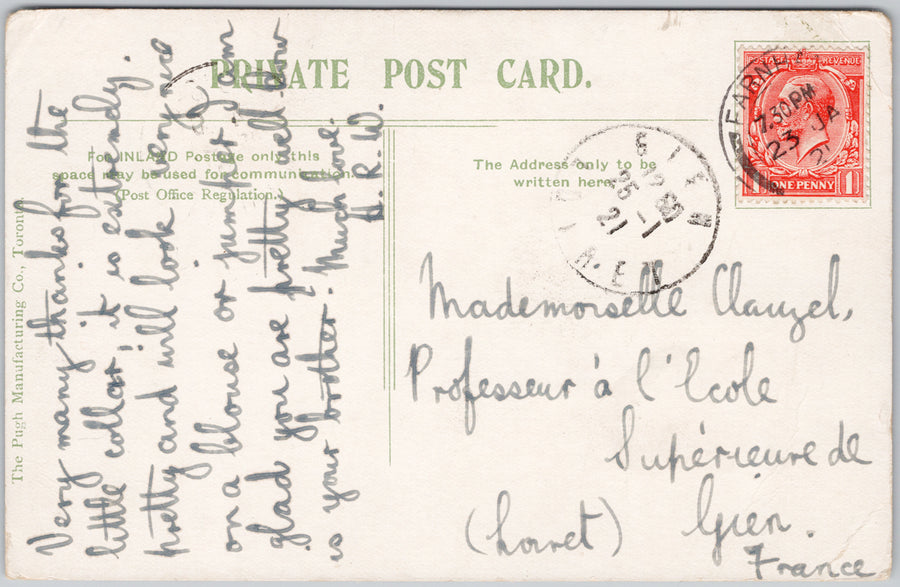 PRIVATE POST CARD.
For INLAND Postage only this
space may be used for communication.
(Post Office Regulation.)
The Address only to be
written here.
The Pugh Manufacturing Co., Toronto
POSTAGE REVENUE
ONE PENNY
1 1
7.30 PM
23 JA
21
GIEN
25
21
Very many thanks for the
little collar; it is extremely
pretty and will look very nice
on a blouse or jumper. I am
glad you are pretty well. How
is your brother. Much love.
H.R.W.
Mademoiselle Clauzel,
Professeur à l'Ecole
Supérieure de
Gien.
(Loiret)
France